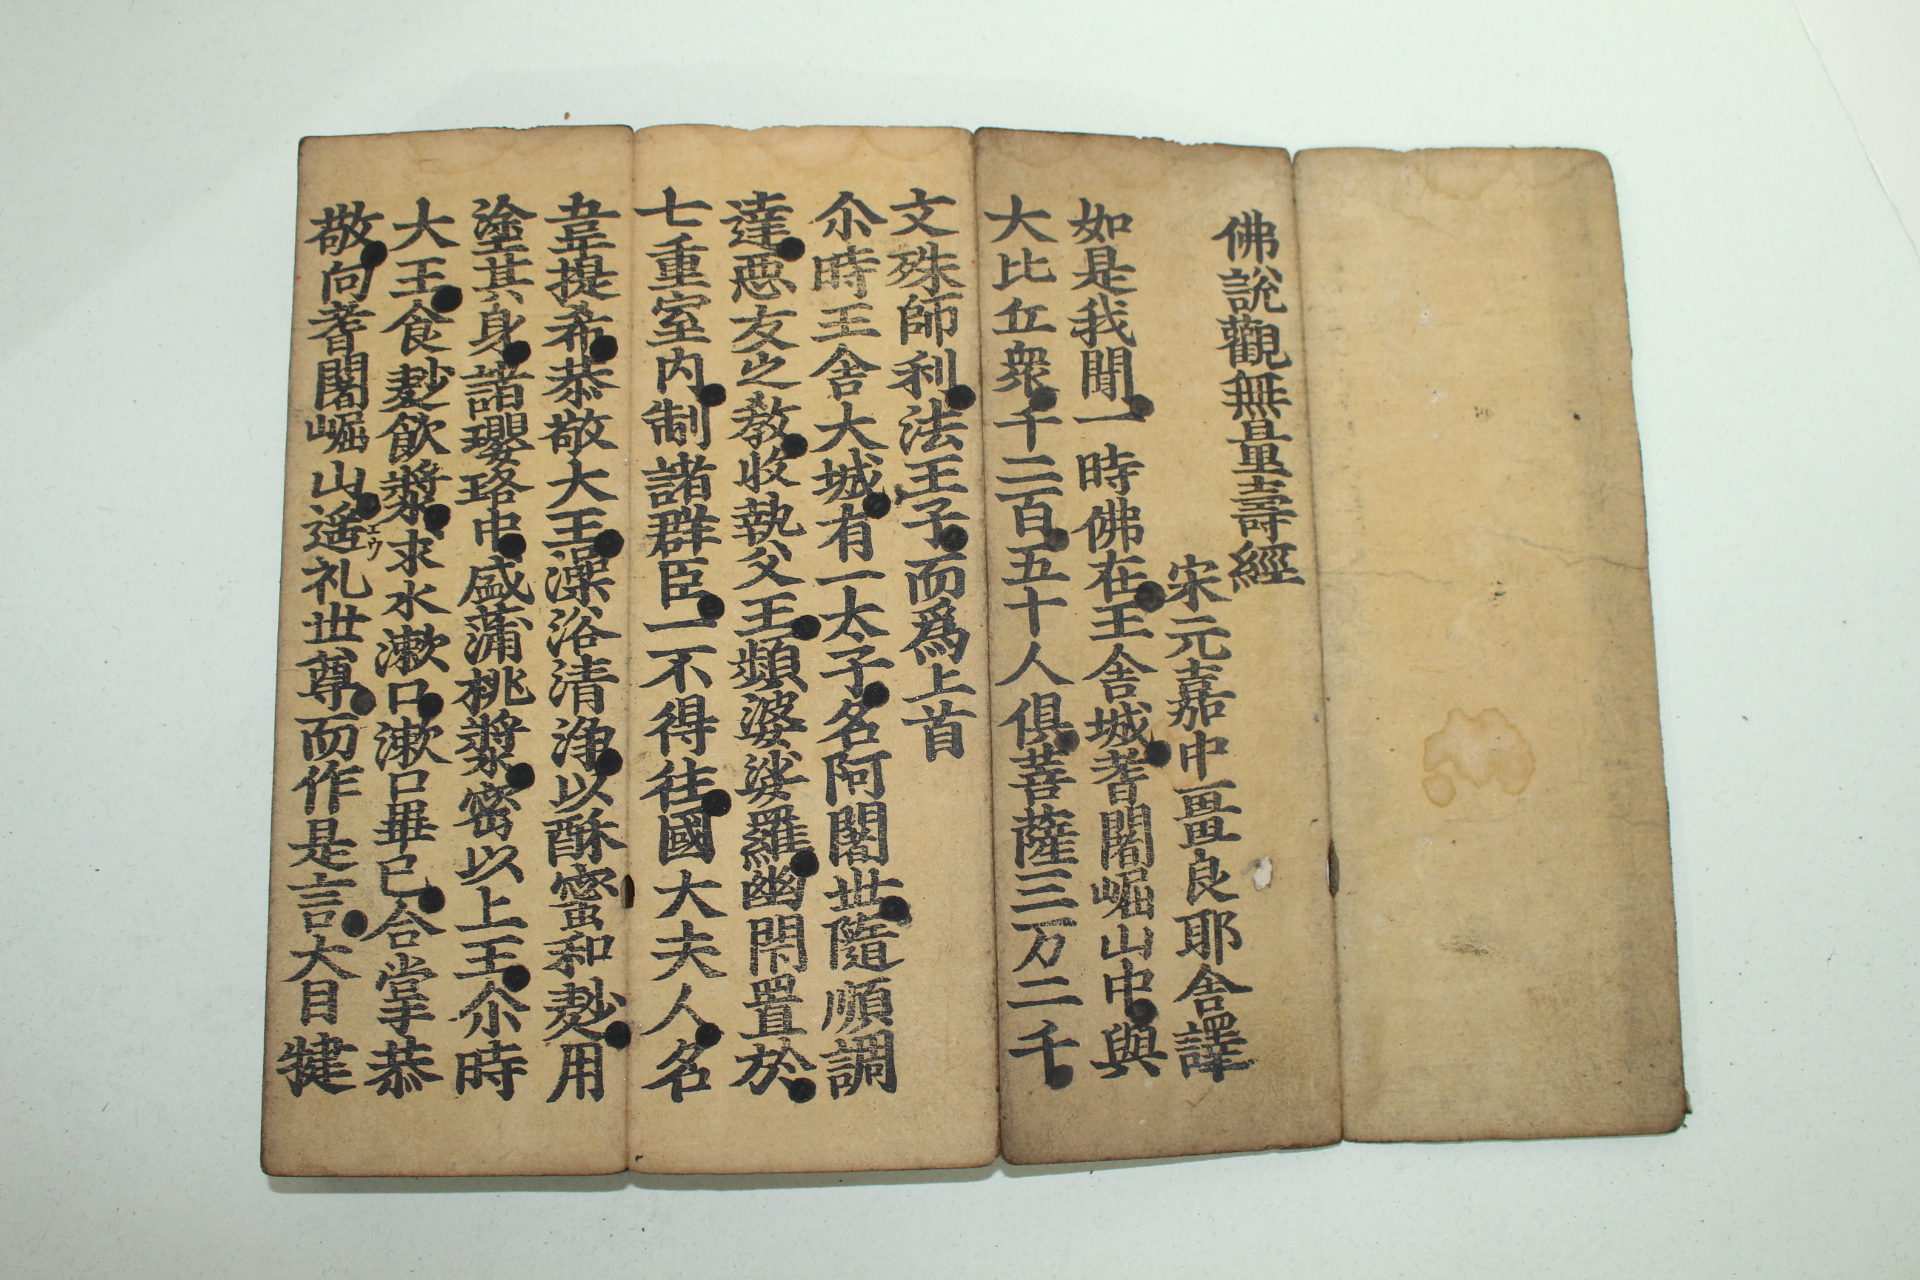 佛說觀無量壽經
宋元嘉中畺良耶舍譯
如是我聞一時佛在王舍城耆闍崛山中與
大比丘衆千二百五十人俱菩薩三万二千
文殊師利法王子而爲上首
尒時王舍大城有一太子名阿闍世隨順調
達惡友之教收執父王頻婆娑羅幽閇置於
七重室内制諸群臣一不得往國大夫人名
韋提希恭敬大王澡浴清淨以酥蜜和麨用
塗其身諸瓔珞中盛蒲桃漿密以上王尒時
大王食麨飲漿求水漱口漱口畢已合掌恭
敬向耆闍崛山遥礼世尊而作是言大目犍
エウ